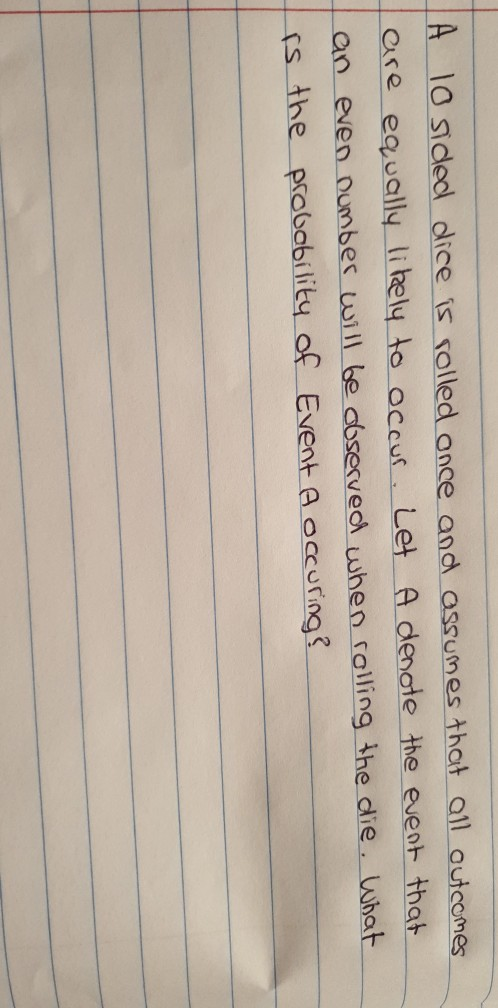 A 10 sided dice is rolled once and assumes that all outcomes
are equally likely to occur. Let A denote the event that
an even number will be observed when rolling the die. What
is the probability of Event A occuring?